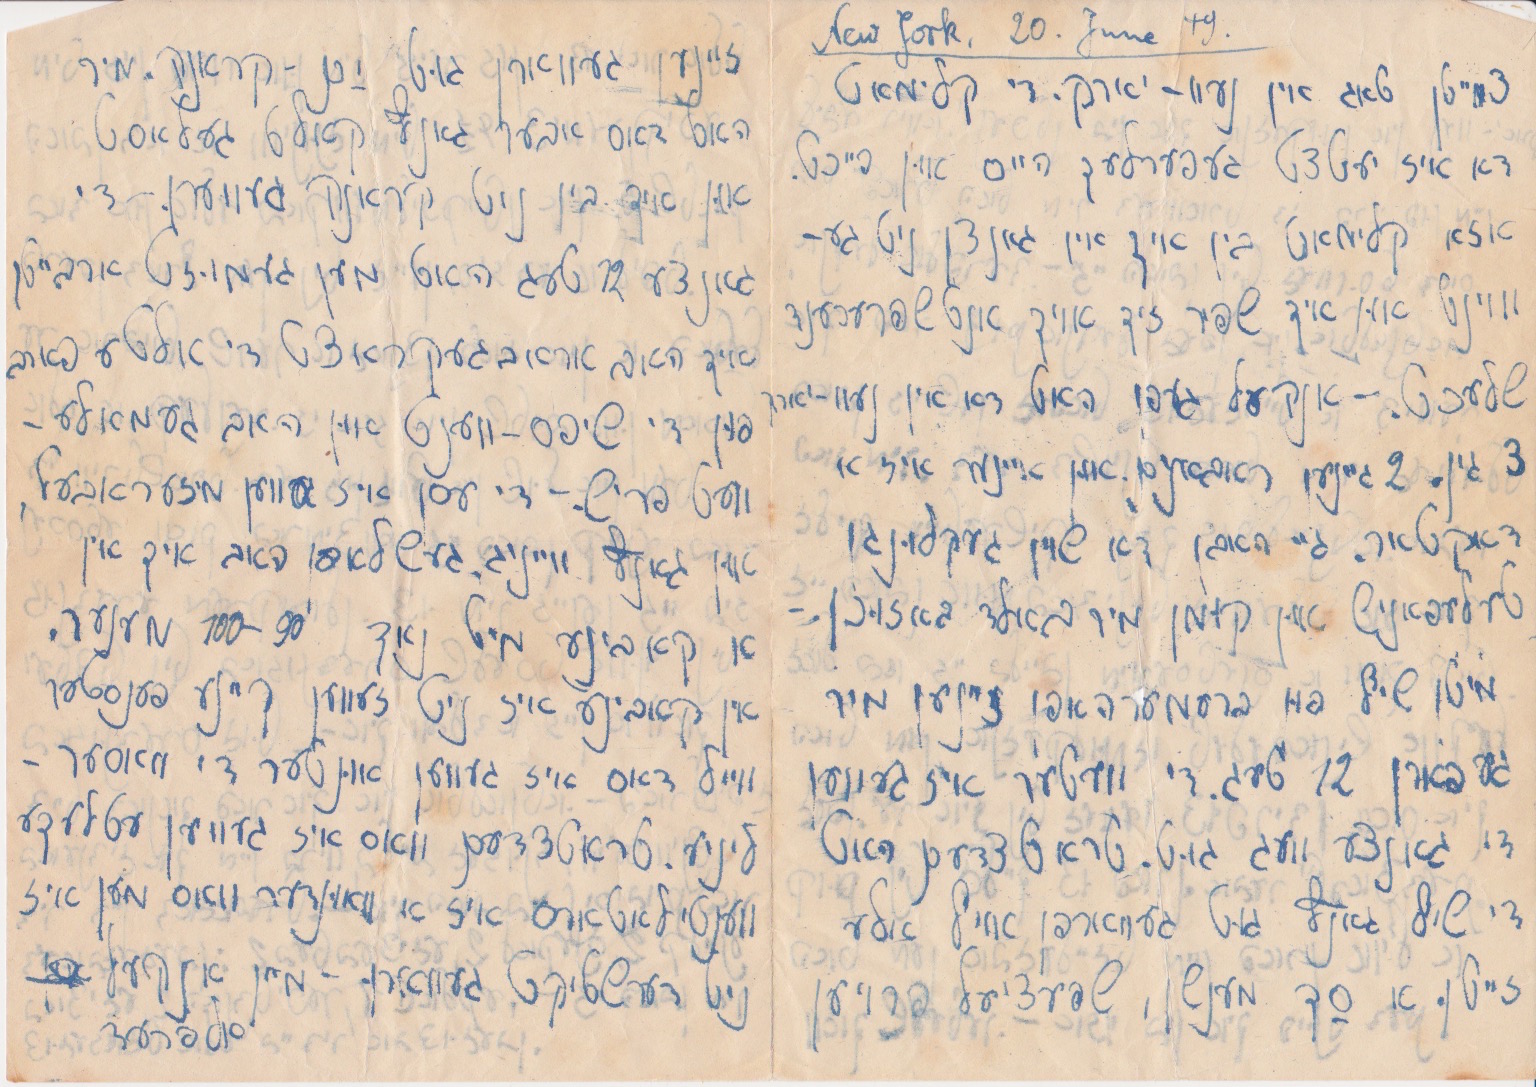 New York, 20. June 49.
צווייטן טאג אין נעוו-יארק. די קלימאט
דא איז יעטצט געפערלעך הייס אוין פייכט.
אזא קלימאט בין איך אין גאנצן ניט גע-
וווינט אוין איך שפיר זיך אויך אנטשפרעכענד
שלעכט. - אנקעל האט דא אין נעוו-יארק
3 זין. 2 זיינען ראבאינים אוין איינער איז א
דאקטאר. זיי האבן דא שוין געקלונגן
טעלעפאניש אוין קומען מיר באלד באזוכן. -
מיטן שיף פון ברעמערהאפן זיינען מיר
געפארן 12 טעג. די וועטער איז געווען
די גאנצע וועג גוט. טראטצדעם האט
די שיף גאנץ גוט געווארפן אויף אלע
זייטן. א סך מענשן, שפעציעל פרויען
זיינען געווארן גוט ים-קראנק. מיר
האט דאס אבער גאנץ קאלט געלאסט
אוין איך בין ניט קראנק געווערן. - די
גאנצע 12 טעג האט מען געמוזט ארבייטן
איך האב אראבגעקראצט די אלטע פארב
פון די שיפס-ווענט אוין האב געמאלע-
וועט פריש. - די עסן איז געווען מיזעראבעל,
אוין גאנץ ווייניג. געשלאפן האב איך אין
א קאבינע מיט נאך 90-100 מענער.
אין קאבינע איז ניט געווען קיינע פענסטער
ווייל דאס איז געווען אונטער די וואסער-
ליניע. טראטצדעם וואס איז געווען עטלעכע
ווענטילאטארס איז א וואונדער וואס מען איז
ניט דערשטיקט געווארן. - מיין אנקעל